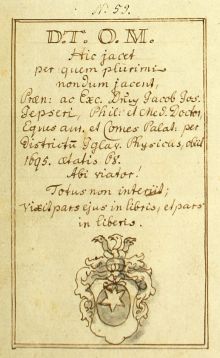 N. 59.
D. T. O. M.
Hic jacet
per quem plurimi
nondum jacent,
Præn: ac Exc. Dnus Jacob Jos.
Phil: et Med. Doctor,
Eques aur. et Comes Palat. per
Districtũ Iglav. Physicus, obiit
1695. ætatis 68.
Abi viator!
Totus non interiit;
vixit pars ejus in libris, et pars
in liberis.